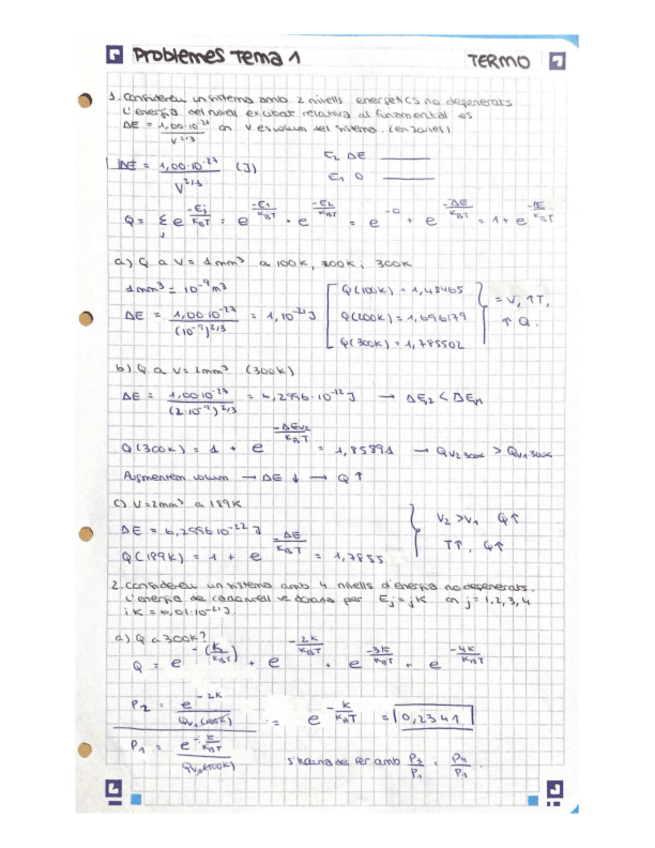 Problemes Tema 1 TERMO
1. Considereu un sistema amb 2 nivells energetics no degenerats
L'energia del nivell excitat relativa al fonamental es
ΔE = 1,00·10⁻²⁷ / V^2/3 on V es volum del sistema. (en Joules)
ΔE = 1,00·10⁻²⁷ / V^2/3 (J)
E₂ ΔE
E₁ 0
Q = Σj e^(-Ej/KBT) = e^(-E1/KBT) + e^(-E2/KBT) = e^-0 + e^(-ΔE/KBT) = 1 + e^(-ΔE/KBT)
a) Q a V = 1mm³ a 100K, 200K i 300K
1mm³ = 10⁻⁹ m³
ΔE = 1,00·10⁻²⁷ / (10⁻⁹)^2/3 = 1·10⁻²¹ J
Q(100K) = 1,48465
Q(200K) = 1,696179
Q(300K) = 1,785502
= V, ↑T, ↑Q.
b) Q a V = 2mm³ (300K)
ΔE = 1,00·10⁻²⁷ / (2·10⁻⁹)^2/3 = 6,2996·10⁻²² J → ΔE2 < ΔE1
Q(300K) = 1 + e^(-ΔEv2/KBT) = 1,85891 → Qv2 300K > Qv1 300K
Augmentem volum → ΔE ↓ → Q ↑
c) V = 2mm³ a 189K
ΔE = 6,2996·10⁻²² J
Q(189K) = 1 + e^(-ΔE/KBT) = 1,7855
V₂ > V₁ Q↑
T↑, Q↑
2. Considereu un sistema amb 4 nivells d'energia no degenerats.
L'energia de cada nivell ve donada per Ej = jK on j = 1,2,3,4
i K = 6,01·10⁻²¹ J
a) Q a 300K?
Q = e^-(K/KBT) + e^(-2K/KBT) + e^(-3K/KBT) + e^(-4K/KBT)
P₂ = e^-2K
P₁ = e^(-K/KBT)
= e^(-K/KBT) = 0,2341
s'hauria de fer amb P₃/P₁ i P₄/P₁.